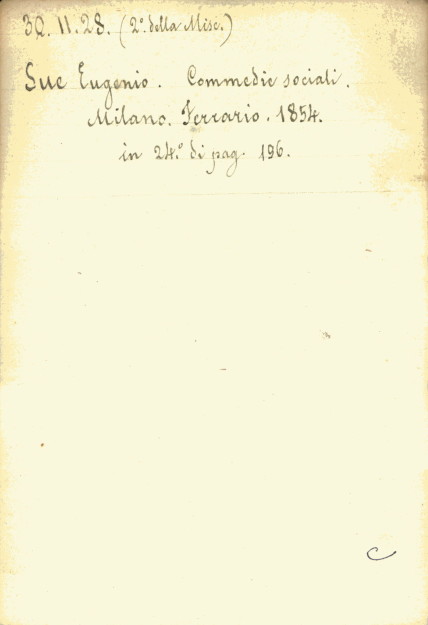 30.11.28. (2º. della Misc.)
Sue Eugenio. Commedie sociali.
Milano. Ferrario. 1854.
in 24.º di pag. 196.
C